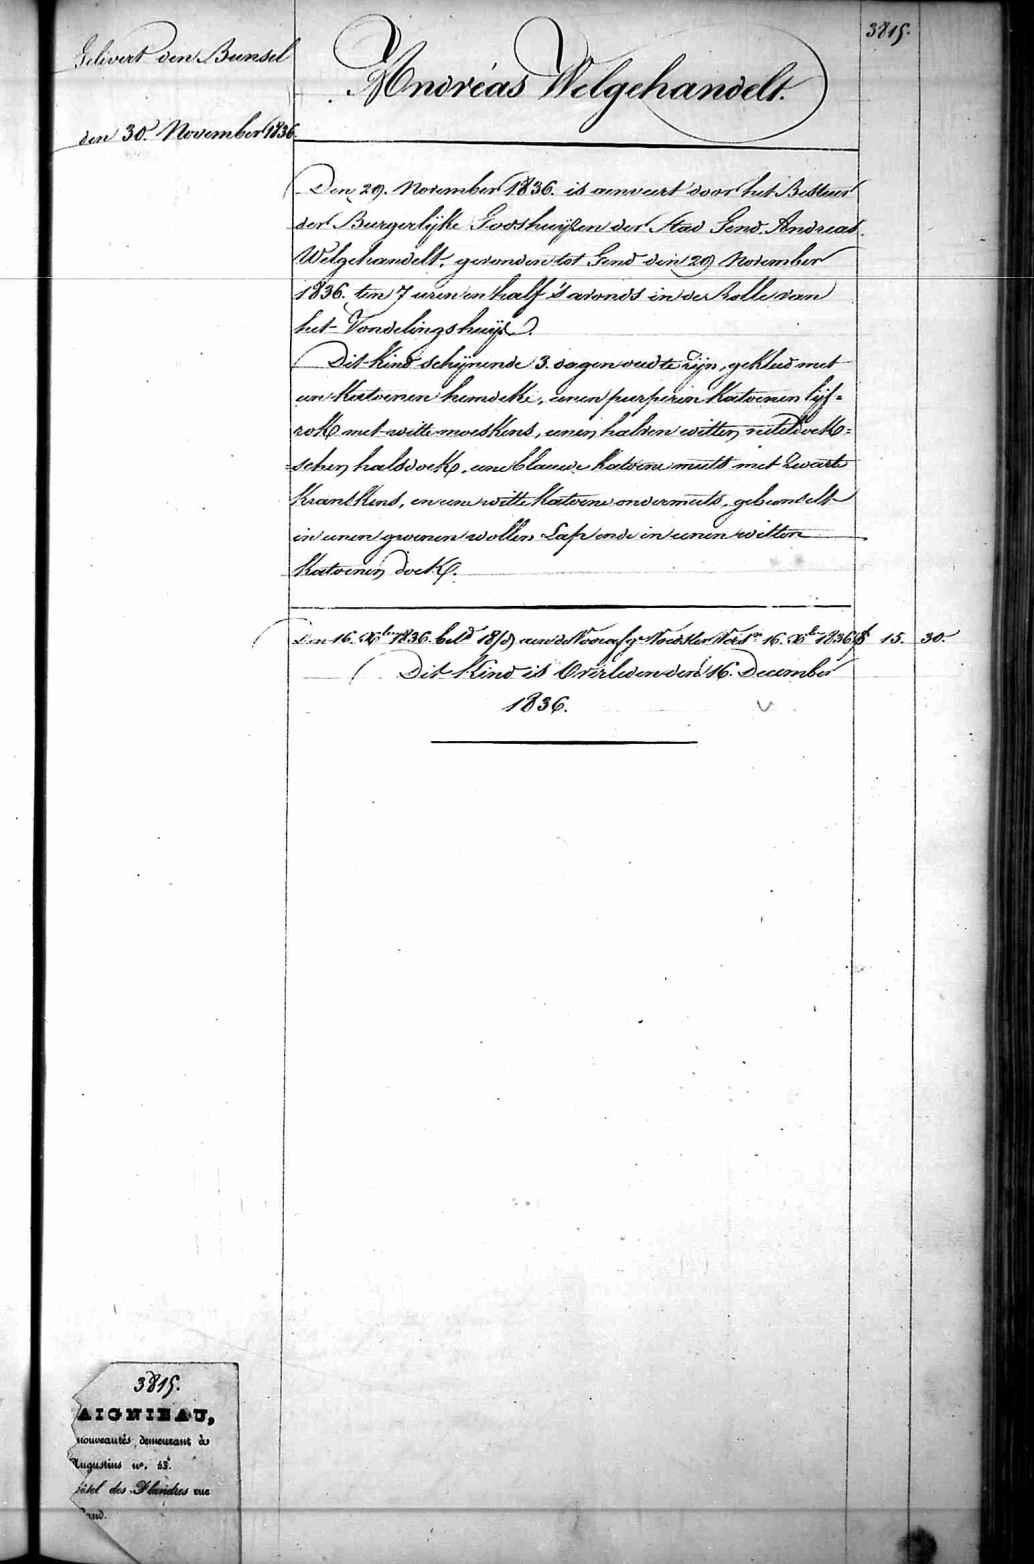 3815.
Gelivert den Bunsel
den 30. November 1836.
Andréas Welgehandelt.
Den 29. November 1836. is aenveert door het Bestuer
der Burgerlijke Godshuijzen der Stad Gend. Andreas
Welgehandelt, gevonden tot Gend den 29 November
1836. ten 7 uren en half 's avonds in de Rolle van
het Vondelingshuijs.
Dit kind schijnende 3. dagen oud te zijn, gekleed met
een katoenen hemdeke, eenen purperen katoenen lijf=
rok met witte moeskens, eenen halven witten neteldoek=
schen halsdoek, eene blauwe katoene muts met zwarte
kranskens, en eene witte katoene ondermuts, gebunselt
in eenen groenen wollen Lap ende in eenen witten
katoenen doek.
Den 16. Xbr 1836. 16. Xbr 1836 15. 30.
Dit Kind is Overleden den 16. December
1836.
3815.
AIGNIEAU,
nouveautés, demeurant à
Augustins no. 53.
hôtel des Flandres rue
Gand.